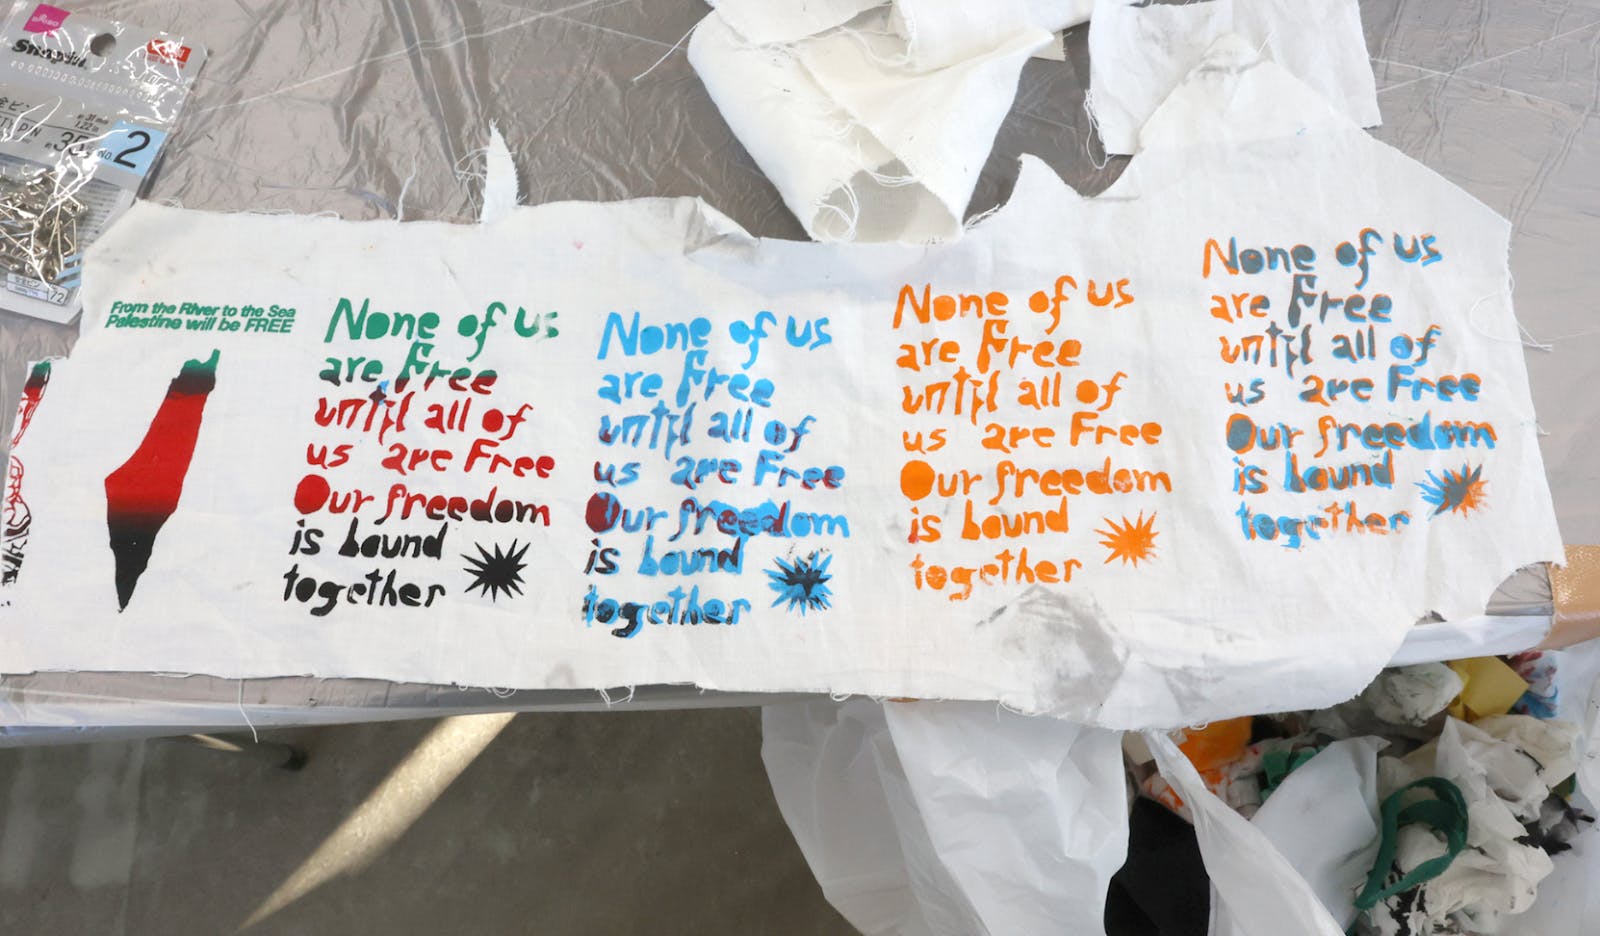 全ピン
TY PIN
約31mm
1.22in
No. 2
72
From the River to the Sea
Palestine will be FREE
None of us
are Free
until all of
us are Free
Our freedom
is bound
together
None of us
are Free
until all of
us are Free
Our freedom
is bound
together
None of us
are Free
until all of
us are Free
Our freedom
is bound
together
None of us
are Free
until all of
us are Free
Our freedom
is bound
together